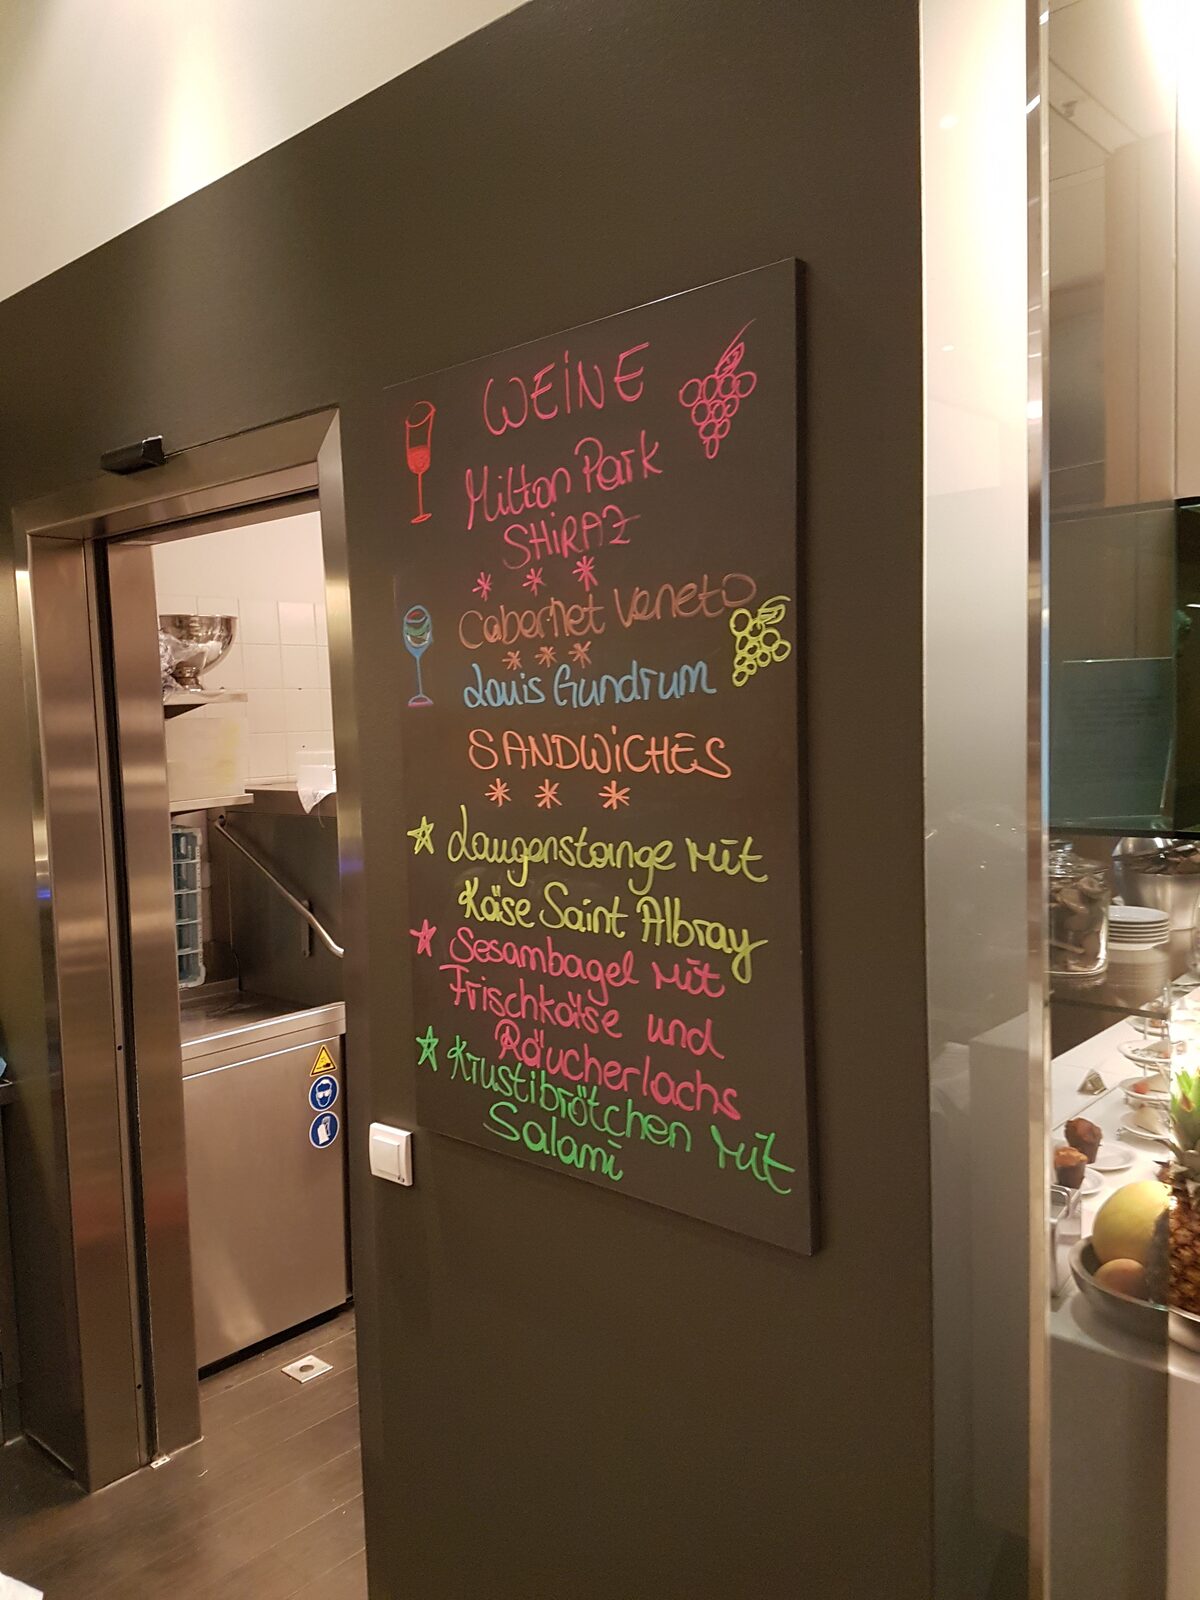 WEiNE
Milton Park
SHiRAZ
Cabernet Veneto
Louis Gundrum
SANDWiCHES
Laugenstange mit
Käse Saint Albray
Sesambagel mit
Frischkäse und
Räucherlachs
Krustibrötchen mit
Salami